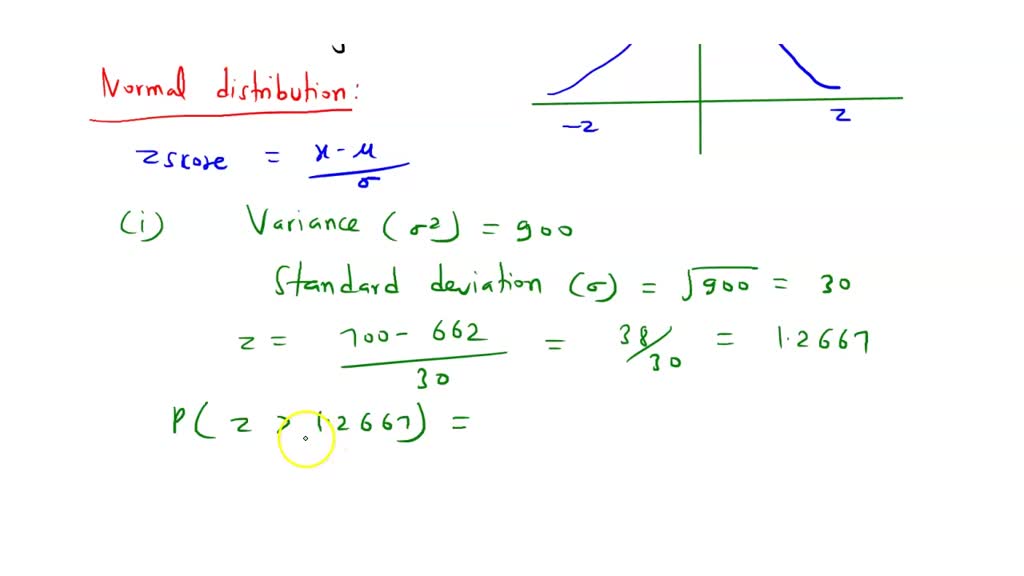 Normal distribution:
-z
z
z skore = x - μ / σ
(i) Variance (σ²) = 900
Standard deviation (σ) = √900 = 30
z = 700 - 662 / 30 = 38/30 = 1.2667
P( z > 1.2667) =